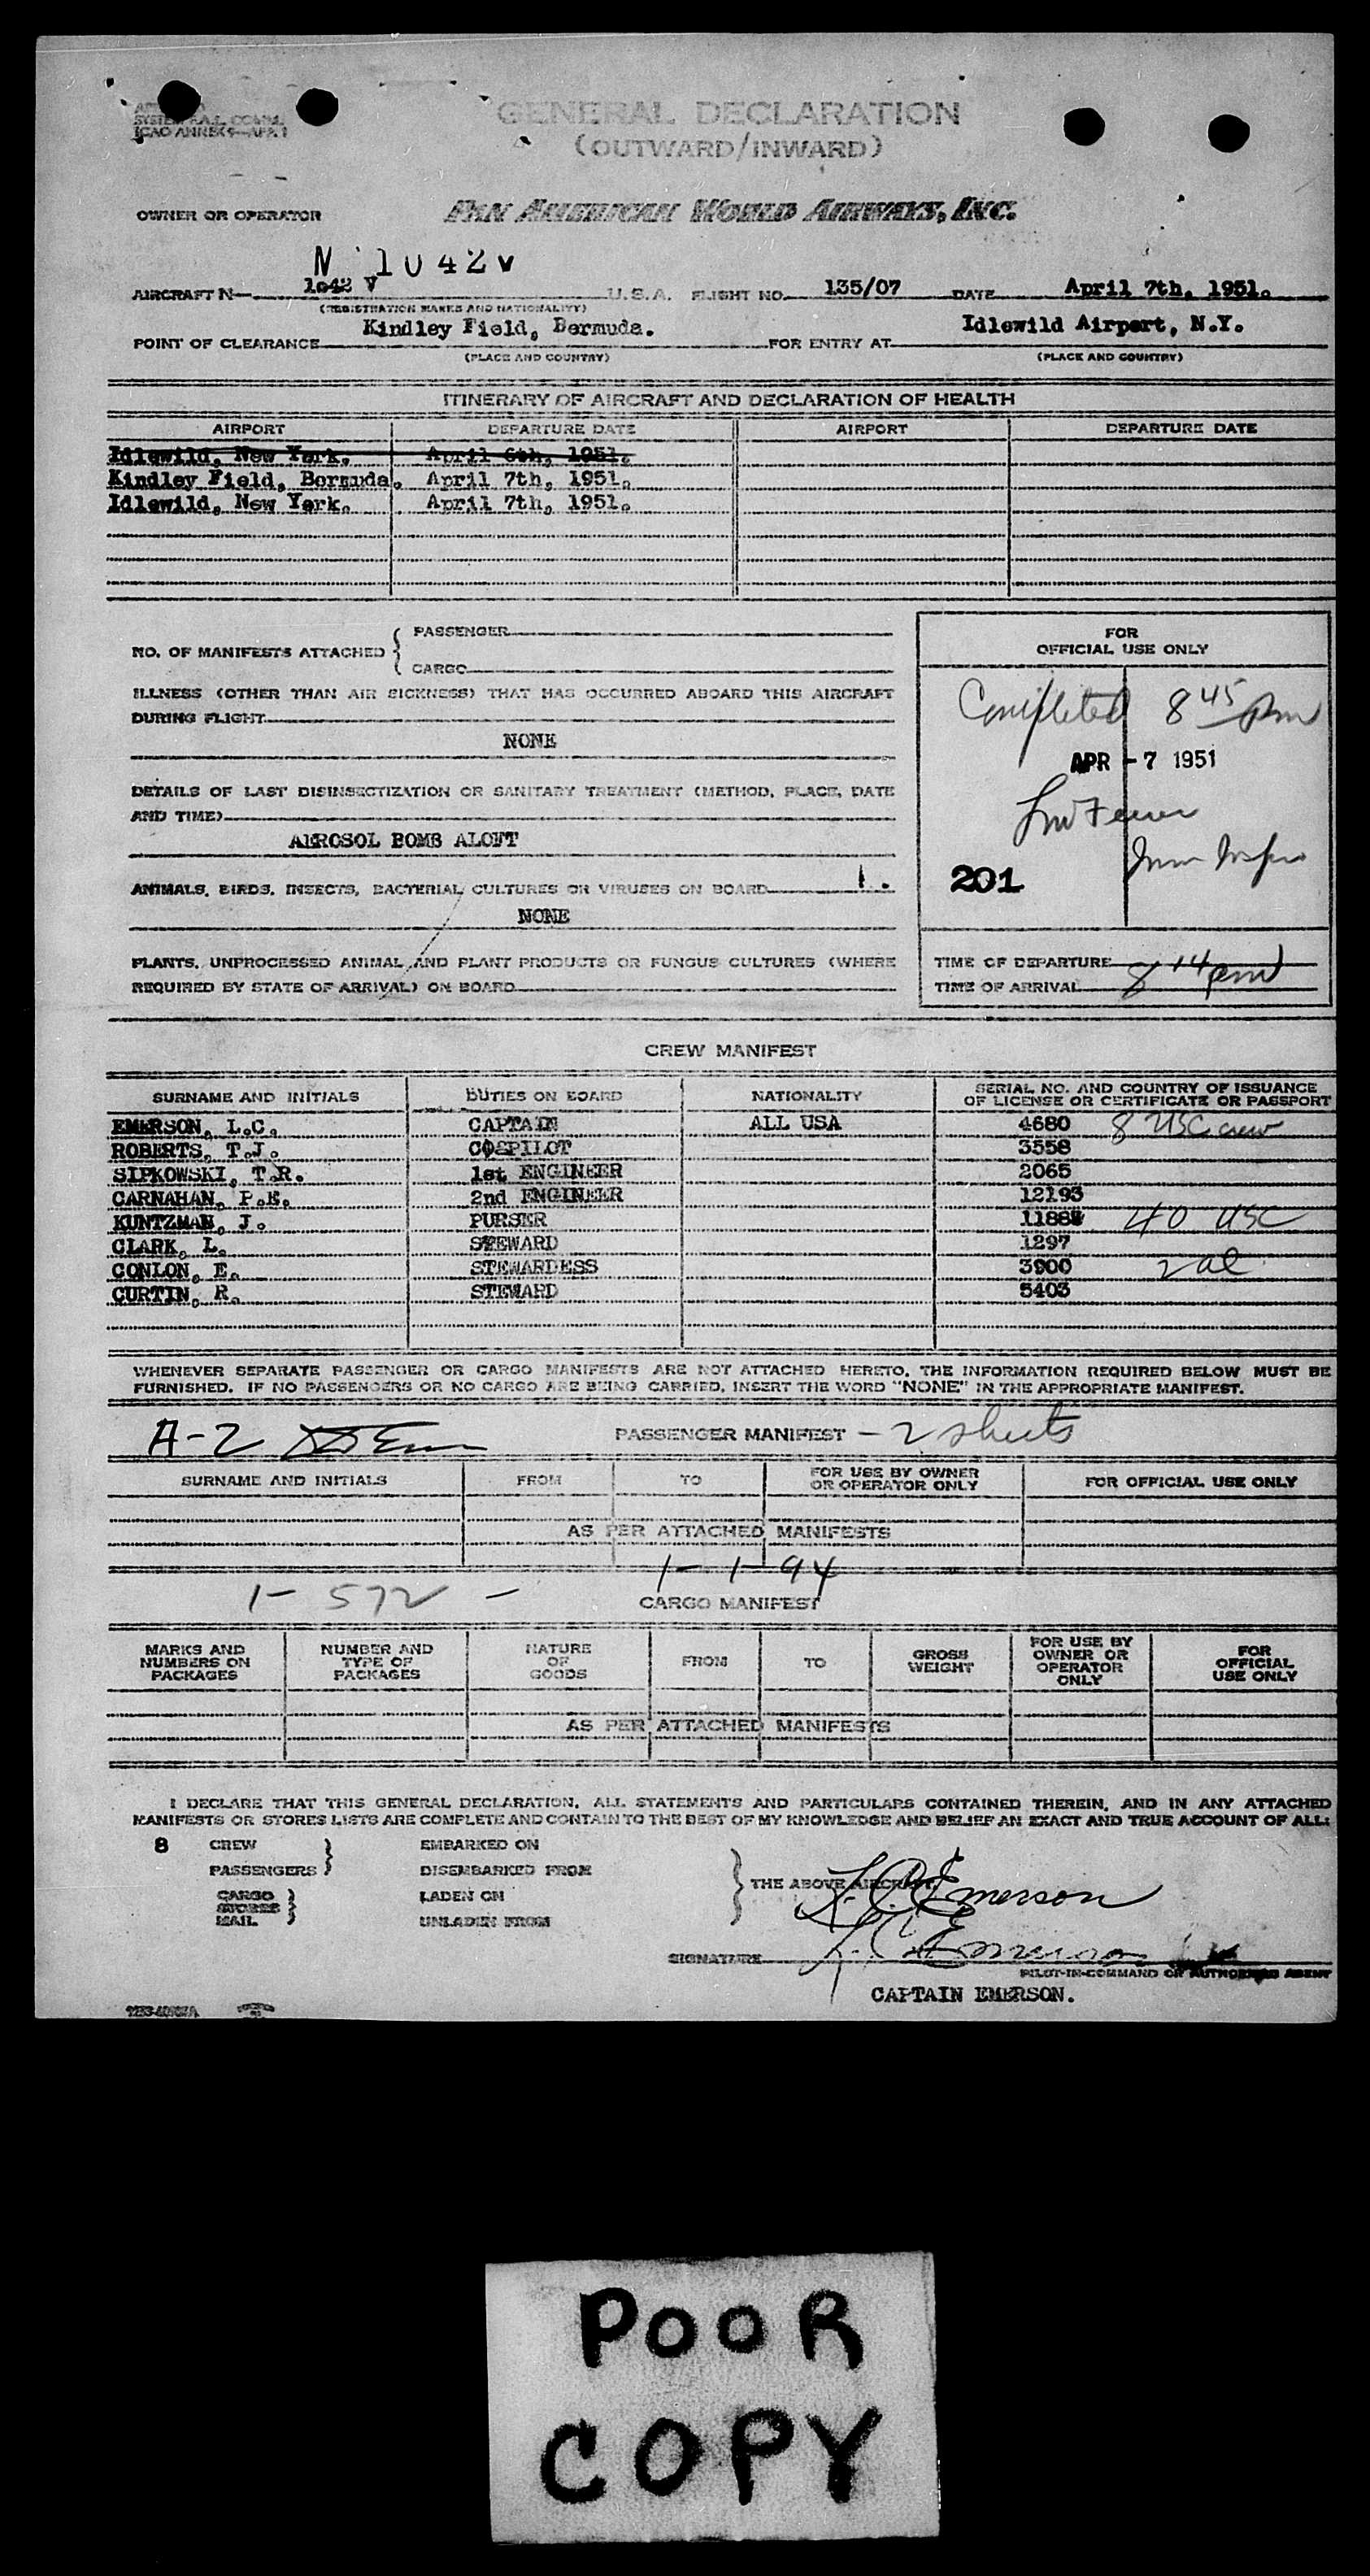 GENERAL DECLARATION
(OUTWARD/INWARD)
ICAO ANNEX 9—APP. 1
OWNER OR OPERATOR PAN AMERICAN WORLD AIRWAYS, INC.
N 1042V
AIRCRAFT N— 1042 V U.S.A. FLIGHT NO. 135/07 DATE April 7th, 1951.
(REGISTRATION MARKS AND NATIONALITY)
POINT OF CLEARANCE Kindley Field, Bermuda. FOR ENTRY AT Idlewild Airport, N.Y.
(PLACE AND COUNTRY) (PLACE AND COUNTRY)
ITINERARY OF AIRCRAFT AND DECLARATION OF HEALTH
AIRPORT DEPARTURE DATE AIRPORT DEPARTURE DATE
Idlewild, New York. April 6th, 1951.
Kindley Field, Bermuda. April 7th, 1951.
Idlewild, New York. April 7th, 1951.
NO. OF MANIFESTS ATTACHED { PASSENGER
CARGO
ILLNESS (OTHER THAN AIR SICKNESS) THAT HAS OCCURRED ABOARD THIS AIRCRAFT
DURING FLIGHT
NONE
DETAILS OF LAST DISINSECTIZATION OR SANITARY TREATMENT (METHOD, PLACE, DATE
AND TIME)
AEROSOL BOMB ALOFT
ANIMALS, BIRDS, INSECTS, BACTERIAL CULTURES OR VIRUSES ON BOARD
NONE
PLANTS, UNPROCESSED ANIMAL AND PLANT PRODUCTS OR FUNGUS CULTURES (WHERE
REQUIRED BY STATE OF ARRIVAL) ON BOARD
FOR
OFFICIAL USE ONLY
Completed 8 45 pm
APR -7 1951
201
TIME OF DEPARTURE
TIME OF ARRIVAL 8 14 pm
CREW MANIFEST
SURNAME AND INITIALS DUTIES ON BOARD NATIONALITY SERIAL NO. AND COUNTRY OF ISSUANCE
OF LICENSE OR CERTIFICATE OR PASSPORT
EMERSON, L.C. CAPTAIN ALL USA 4680 8 USC crew
ROBERTS, T.J. COPILOT 3558
SIPKOWSKI, T.R. 1st ENGINEER 2065
CARNAHAN, P.E. 2nd ENGINEER 12193
KUNTZMAN, J. PURSER 11884 40 USC
CLARK, L. STEWARD 1297
CONLON, E. STEWARDESS 3900 2 al
CURTIN, R. STEWARD 5403
WHENEVER SEPARATE PASSENGER OR CARGO MANIFESTS ARE NOT ATTACHED HERETO, THE INFORMATION REQUIRED BELOW MUST BE
FURNISHED. IF NO PASSENGERS OR NO CARGO ARE BEING CARRIED, INSERT THE WORD "NONE" IN THE APPROPRIATE MANIFEST.
A-2 PASSENGER MANIFEST — 2 sheets
SURNAME AND INITIALS FROM TO FOR USE BY OWNER
OR OPERATOR ONLY FOR OFFICIAL USE ONLY
AS PER ATTACHED MANIFESTS
1- 1- 94
1- 572 -
CARGO MANIFEST
MARKS AND
NUMBERS ON
PACKAGES NUMBER AND
TYPE OF
PACKAGES NATURE
OF
GOODS FROM TO GROSS
WEIGHT FOR USE BY
OWNER OR
OPERATOR
ONLY FOR
OFFICIAL
USE ONLY
AS PER ATTACHED MANIFESTS
I DECLARE THAT THIS GENERAL DECLARATION, ALL STATEMENTS AND PARTICULARS CONTAINED THEREIN, AND IN ANY ATTACHED
MANIFESTS OR STORES LISTS ARE COMPLETE AND CONTAIN TO THE BEST OF MY KNOWLEDGE AND BELIEF AN EXACT AND TRUE ACCOUNT OF ALL:
8 CREW EMBARKED ON
PASSENGERS DISEMBARKED FROM
THE ABOVE AIRCRAFT.
CARGO LADEN ON
STORES
MAIL UNLADEN FROM
L. C. Emerson
SIGNATURE L. C. Emerson
PILOT-IN-COMMAND OR AUTHORIZED AGENT
CAPTAIN EMERSON.
POOR
COPY